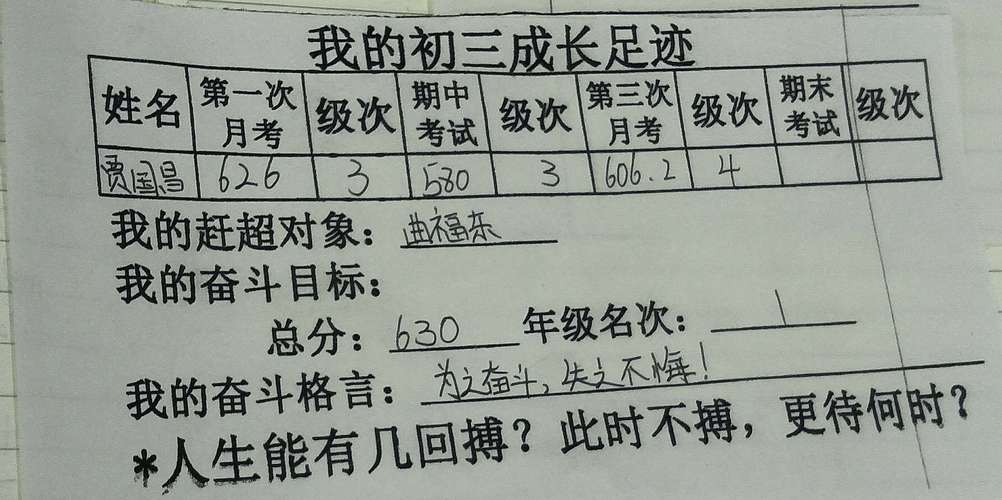 我的初三成长足迹
姓名 第一次月考 级次 期中考试 级次 第三次月考 级次 期末考试 级次
贾国昌 626 3 580 3 606.2 4
我的赶超对象：曲福东
我的奋斗目标：
总分：630 年级名次：1
我的奋斗格言：为之奋斗，失之不悔！
*人生能有几回搏？此时不搏，更待何时？